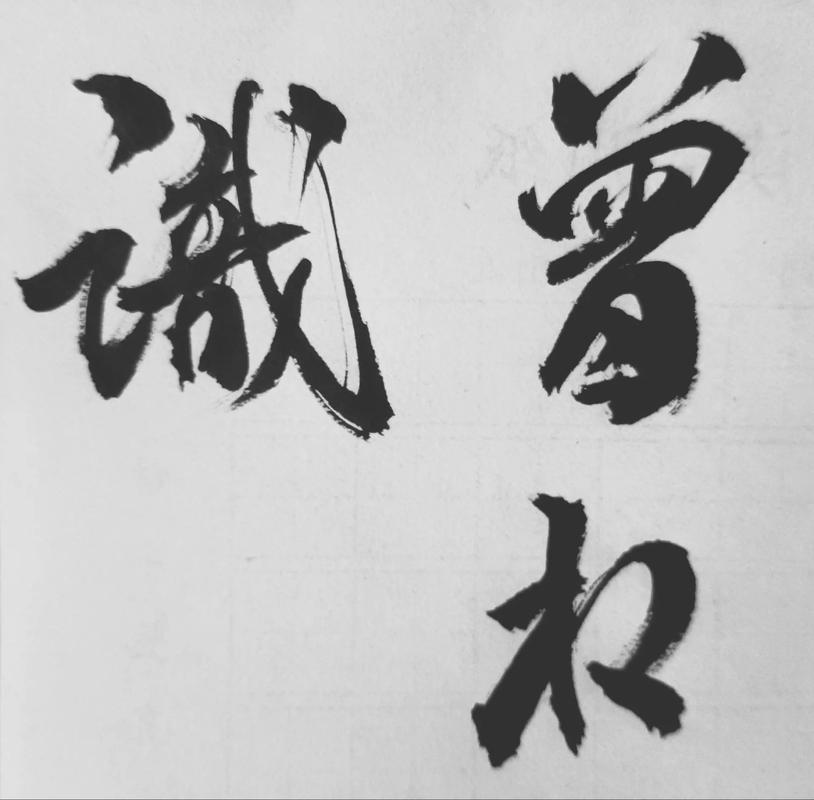 曾相
識